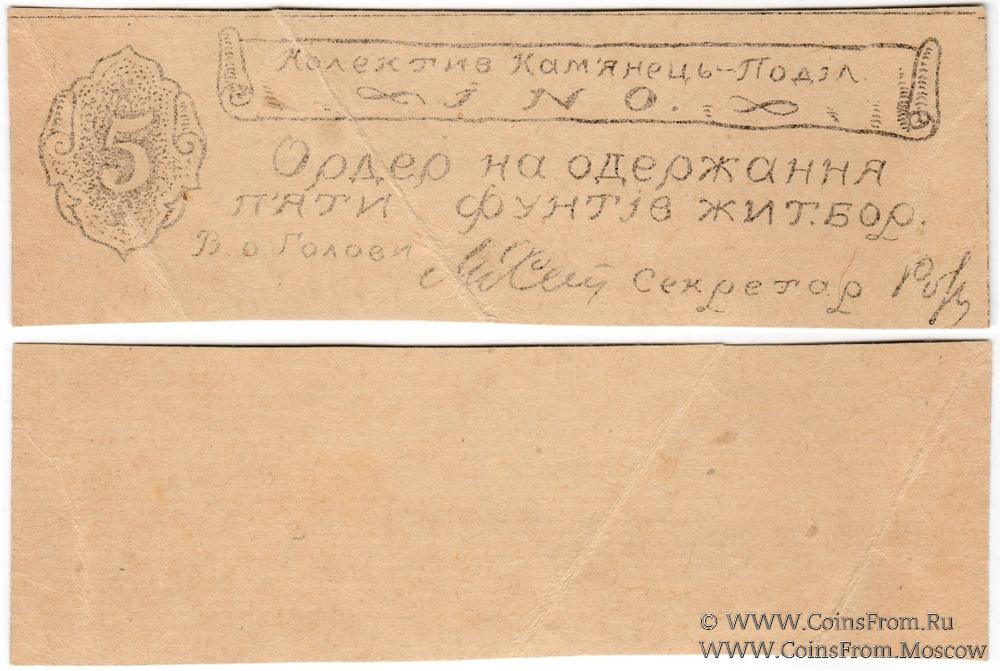 Колектив Кам'янець-Поділ.
І N O.
5
Ордер на одержання
п'яти фунтів жит. бор.
В.о Голови Секретар
© WWW.CoinsFrom.Ru
WWW.CoinsFrom.Moscow